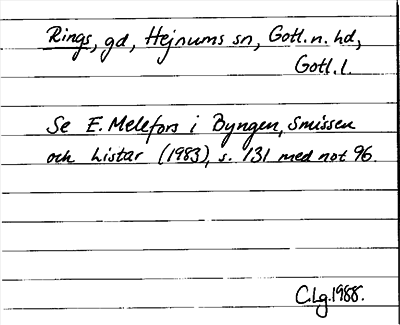 Rings, gd, Hejnums sn, Gotl. n. hd,
Gotl. l.
Se E. Melefors i Byngen, Smissen
och Listar (1983), s. 131 med not 96.
C.Lg. 1988.